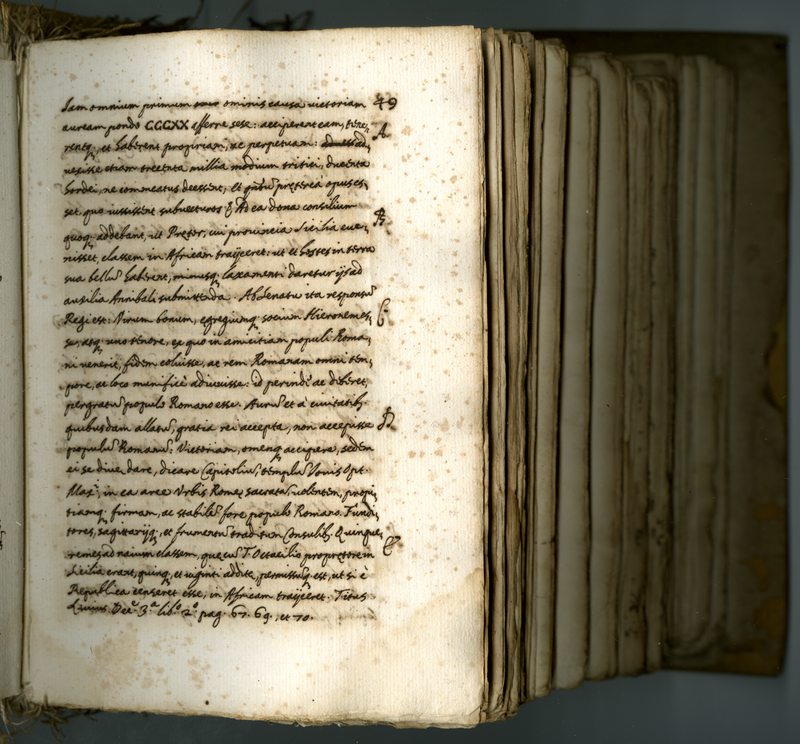 Iam omnium primum ominis causa victoriam 49
auream pondo CCCXX afferre sese: acciperent eam, tene-
rentq;, et haberent propriam, ac perpetuam: advess ad- A
vexisse etiam trecenta millia modium tritici, ducenta
hordei, ne commeatus deessent; Et quãtũ pręterea opus es-
set, quo iussissent subvecturos. Ad ea dona consilium
quoq; addebant, ut Prętor, cui provincia Sicilia eve- B
nisset, classem in Africam traijceret: ut et hostes in terra
sua bellũ haberent, minusq; laxamenti daretur ijs ad
auxilia Annibali submittenda. Ab Senatu ita responsũ
Regi est: Virum bonum, egregiumq; socium Hieronem es- C
se, atq; uno tenore, ex quo in amicitiam populi Roma-
ni venerit, fidem coluisse, ac rem Romanam omni tem-
pore, ac loco munificè adiuvisse: id perindè ac deberet,
pergratũ populo Romano esse. Aurũ et à civitatib;
quibusdam allatũ, gratia rei accepta, non accepisse D
populũ Romanũ: Victoriam, omenq; accipere, sedem
ei se divę dare, dicare Capitoliũ, templũ Iovis Opt.
Max:, in ea arce Vrbis Romę sacratã, volentem, propi-
tiamq; firmam, ac stabilẽ fore populo Romano. Fundi-
tores, sagittarijq;, et frumentũ traditum Consulib;. Quinque- E
remes ad navium classem, quę cũ T. Octacilio proprętore in
Sicilia erant, quinq; et viginti additę, permissũq; est, ut si è
Republica censeret esse, in Africam traijceret. Titus
Livius Dec. 3.ª lib.º 2.º pag. 67. 69., et 70.